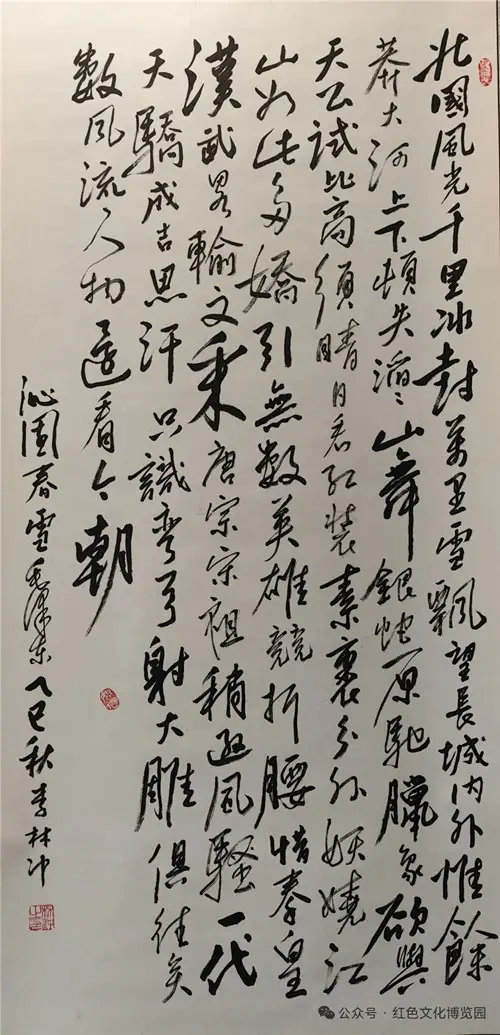 北國風光千里冰封萬里雪飄望長城内外惟餘
莽大河上下頓失滔〻山舞銀蛇原馳臘象欲與
天公試比高須晴日看紅装素裹分外妖嬈江
山如此多嬌引無數英雄競折腰惜秦皇
漢武畧輸文采唐宗宋祖稍遜風騷一代
天驕成吉思汗只識彎弓射大雕俱往矣
數風流人物還看今朝
沁園春雪毛澤東乙巳秋李林冲
公众号·红色文化博览园